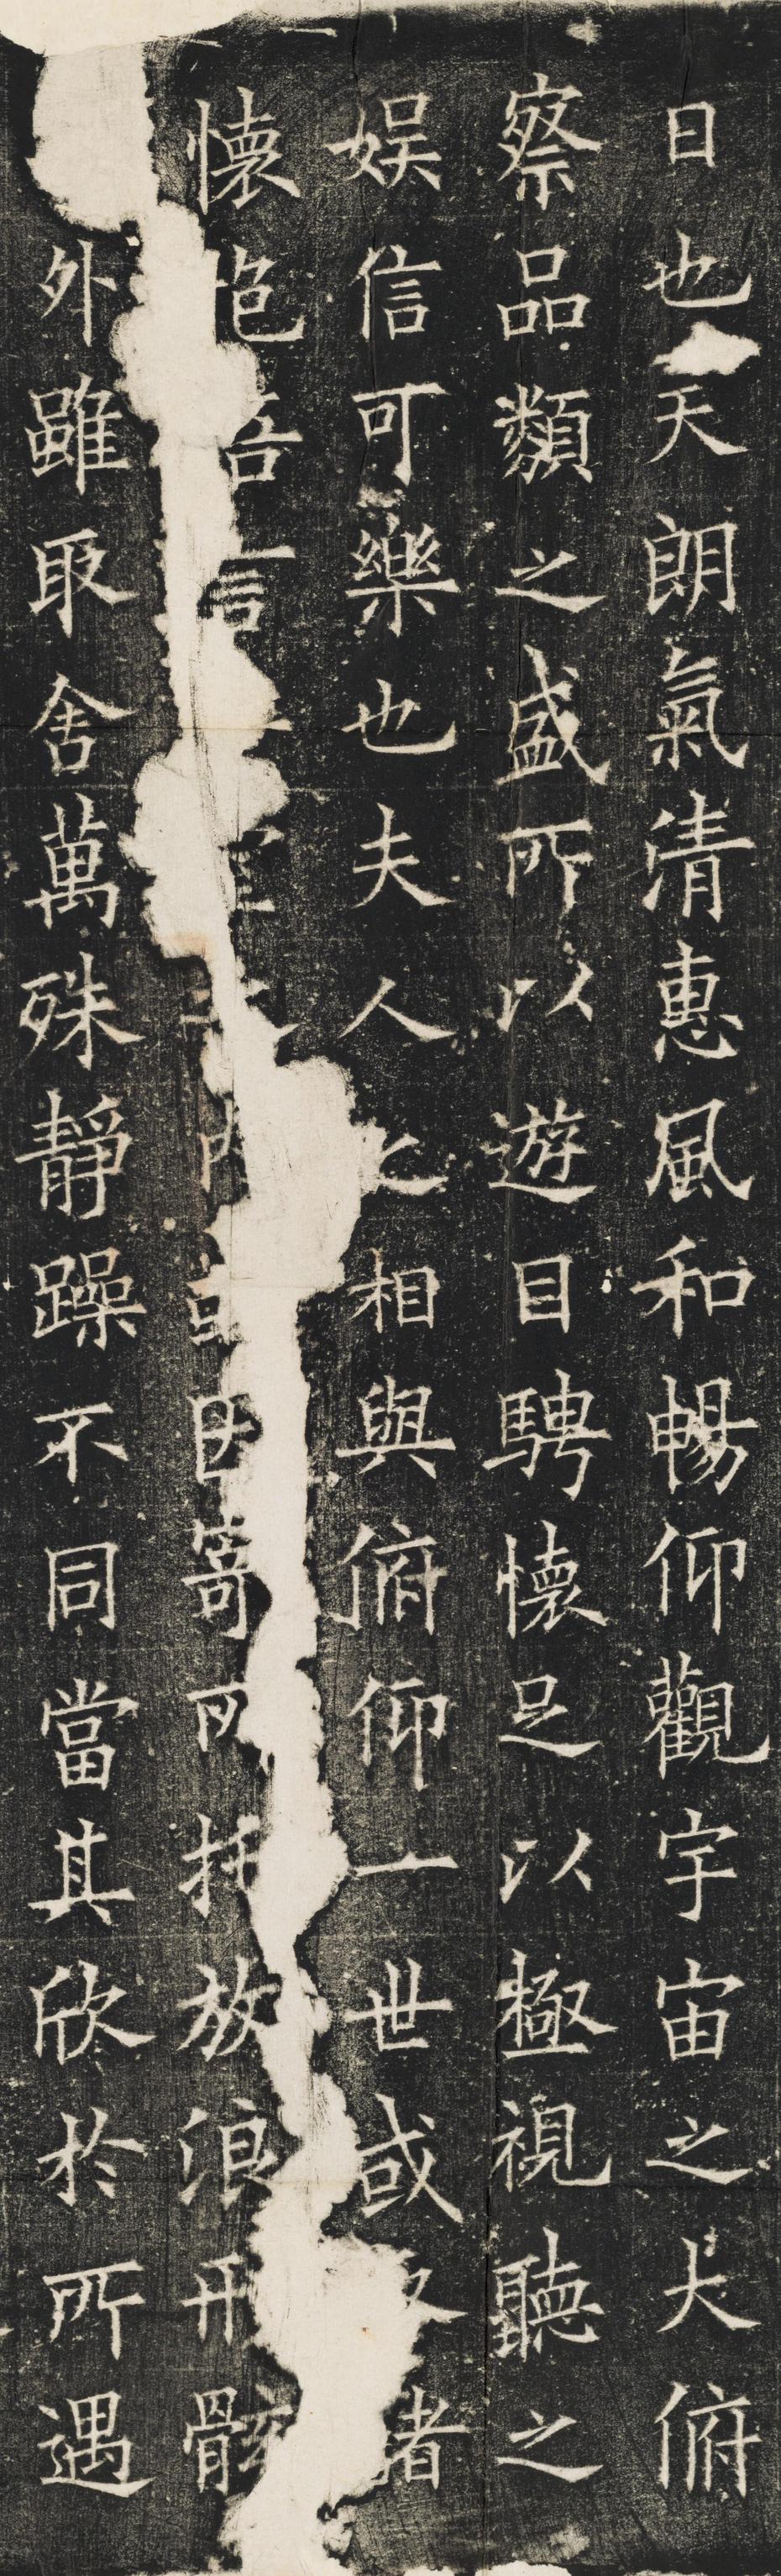 日也天朗氣清惠風和暢仰觀宇宙之大俯
察品類之盛所以遊目騁懷足以極視聽之
娛信可樂也夫人之相與俯仰一世或取諸
懷抱悟言室之內或因寄所托放浪形骸
外雖取舍萬殊靜躁不同當其欣於所遇